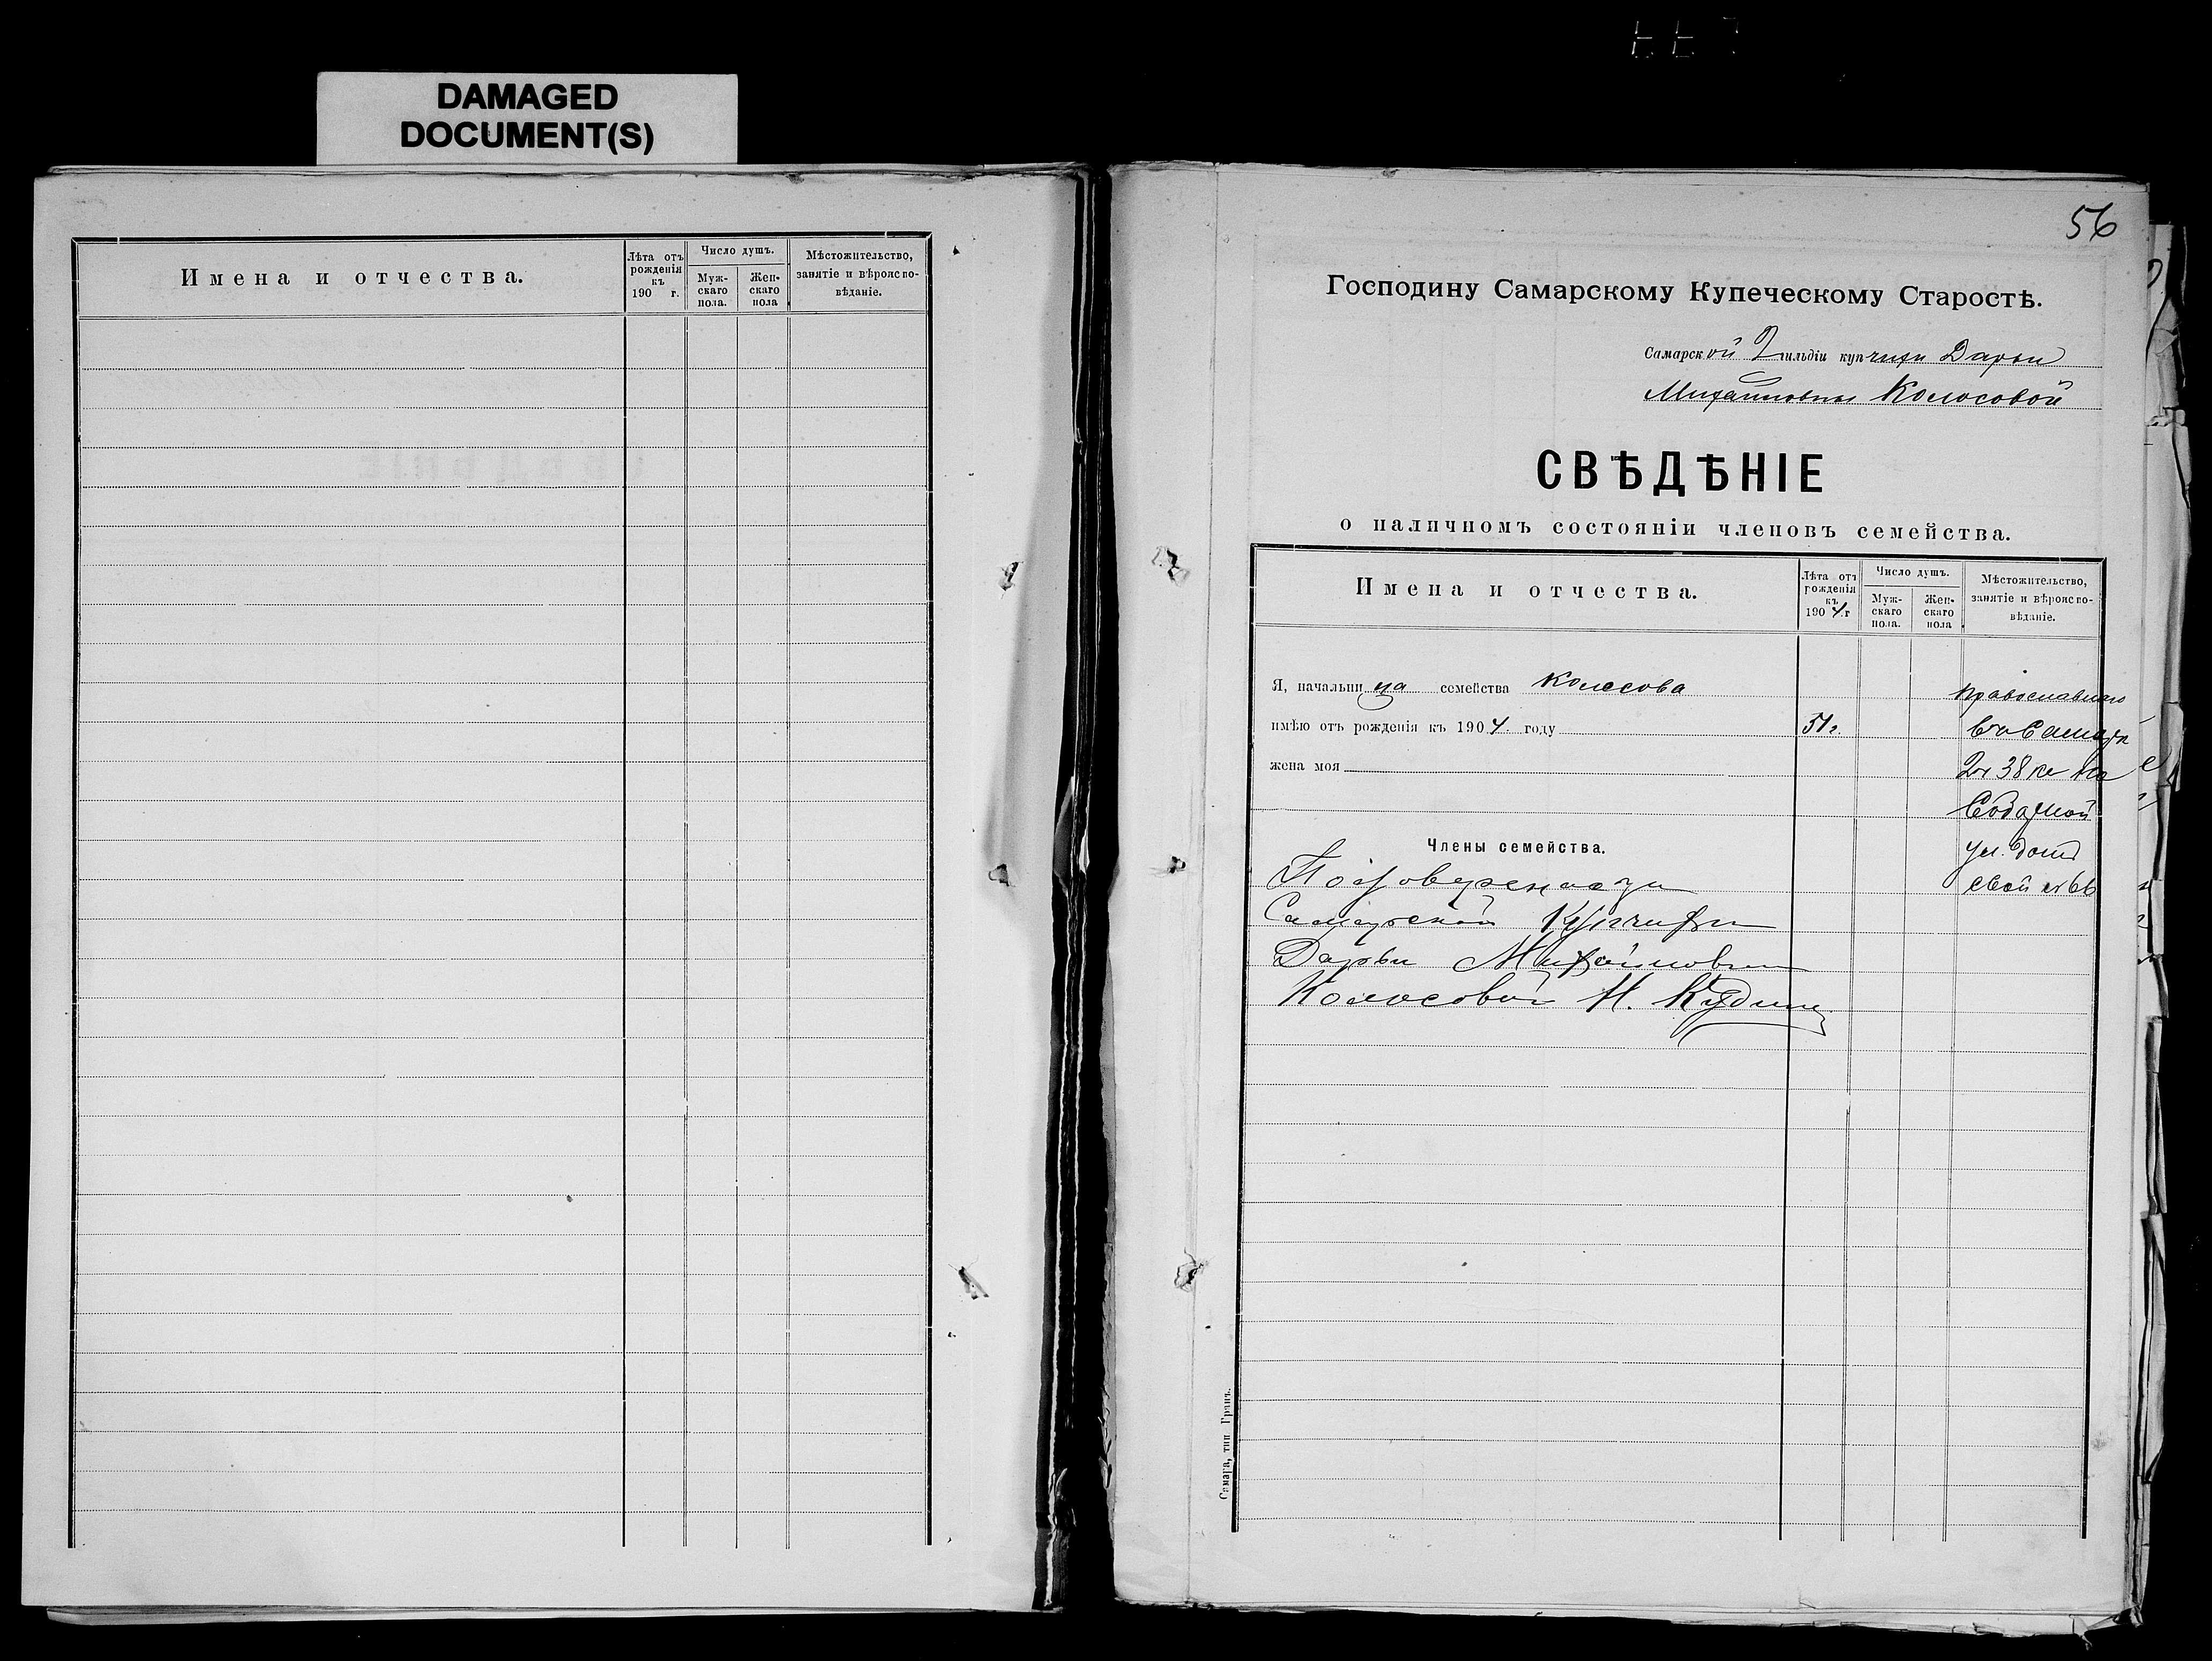 DAMAGED
DOCUMENT(S)
Имена и отчества.
Лѣта отъ рожденія къ 190 г.
Число душъ.
Муж-скаго пола.
Жен-скаго пола
Мѣстожительство, занятіе и вѣроиспо-вѣданіе.
56
Господину Самарскому Купеческому Старостѣ.
Самарской 2 гильдіи купчихи Дарьи
Михайловны Колосовой
СВѢДѢНІЕ
о наличномъ состояніи членовъ семейства.
Имена и отчества.
Лѣта отъ рожденія къ 1904 г
Число душъ.
Муж-скаго пола.
Жен-скаго пола
Мѣстожительство, занятіе и вѣроиспо-вѣданіе.
Я, начальница семейства Колосова
православнаго
имѣю отъ рожденія къ 1904 году 51 г.
въ Самарѣ
жена моя
2 ч 38 кв на
Члены семейства.
ул. домъ
свой
По довѣренности
Самарской Купчихи
Дарьи Михайловны
Колосовой Н.
Самара, тип Гранъ.